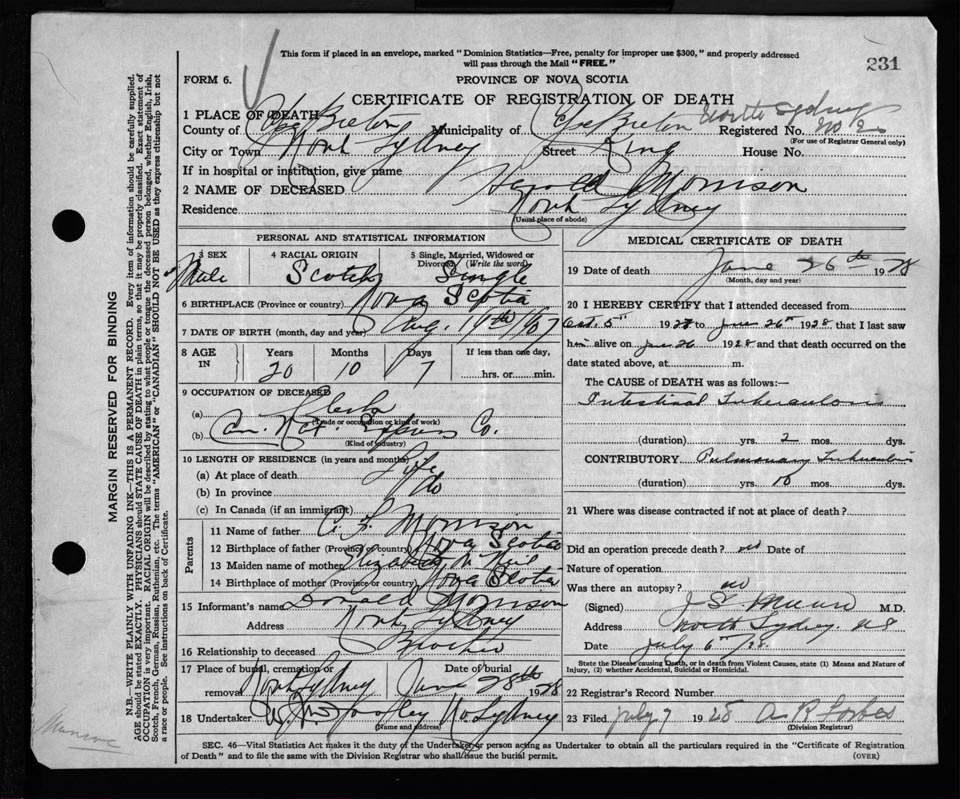 This form if placed in an envelope, marked "Dominion Statistics—Free, penalty for improper use $300," and properly addressed
will pass through the Mail "FREE."
231
FORM 6.
PROVINCE OF NOVA SCOTIA
CERTIFICATE OF REGISTRATION OF DEATH
North Sydney
1 PLACE OF DEATH
County of Cape Breton Municipality of Cape Breton Registered No. No 2
(For use of Registrar General only)
City or Town North Sydney Street King House No.
If in hospital or institution, give name
2 NAME OF DECEASED Harold Morrison
Residence North Sydney
(Usual place of abode)
PERSONAL AND STATISTICAL INFORMATION
3 SEX 4 RACIAL ORIGIN 5 Single, Married, Widowed or
Divorced (Write the word)
Male Scotch Single
6 BIRTHPLACE (Province or country) Nova Scotia
7 DATE OF BIRTH (month, day and year) Aug. 19th 1907
8 AGE IN Years Months Days If less than one day,
20 10 7 hrs. or min.
9 OCCUPATION OF DECEASED
(a) Clerk
(Trade or occupation or kind of work)
(b) Can. Nat. Express Co.
(Kind of industry)
10 LENGTH OF RESIDENCE (in years and months)
(a) At place of death Life
(b) In province do
(c) In Canada (if an immigrant)
Parents
11 Name of father Morrison
12 Birthplace of father (Province or country) Nova Scotia
13 Maiden name of mother Elizabeth McNeil
14 Birthplace of mother (Province or country) Nova Scotia
15 Informant's name Donald Morrison
Address North Sydney
16 Relationship to deceased Brother
17 Place of burial, cremation or Date of burial
removal North Sydney June 28th 1928
18 Undertaker No Sydney
(Name and address)
MEDICAL CERTIFICATE OF DEATH
19 Date of death June 26th 1928
(Month, day and year)
20 I HEREBY CERTIFY that I attended deceased from
Oct. 5th 1927 to June 26th 1928 that I last saw
him alive on June 26 1928 and that death occurred on the
date stated above, at m.
The CAUSE of DEATH was as follows:—
Intestinal Tuberculosis
(duration) yrs. 2 mos. dys.
CONTRIBUTORY Pulmonary Tuberculosis
(duration) yrs. 10 mos. dys.
21 Where was disease contracted if not at place of death?
Did an operation precede death? no Date of
Nature of operation
Was there an autopsy? no
(Signed) M.D.
Address North Sydney NS
Date July 6th/28
State the Disease causing Death, or in death from Violent Causes, state (1) Means and Nature of
Injury, (2) whether Accidental, Suicidal or Homicidal.
22 Registrar's Record Number
23 Filed July 7 1928 A R Forbes
(Division Registrar)
SEC. 46—Vital Statistics Act makes it the duty of the Undertaker or person acting as Undertaker to obtain all the particulars required in the "Certificate of Registration
of Death" and to file the same with the Division Registrar who shall issue the burial permit.
(OVER)
MARGIN RESERVED FOR BINDING
N.B.—WRITE PLAINLY WITH UNFADING INK—THIS IS A PERMANENT RECORD. Every item of information should be carefully supplied.
AGE should be stated EXACTLY. PHYSICIANS should STATE CAUSE OF DEATH in plain terms, so that it may be properly classified. Exact statement of
OCCUPATION is very important. RACIAL ORIGIN will be described by stating to what people or tongue the deceased person belonged, whether English, Irish,
Scotch, French, German, Russian, Ruthenian, etc. The terms "AMERICAN" or "CANADIAN" SHOULD NOT BE USED as they express citizenship but not
a race or people. See instructions on back of Certificate.